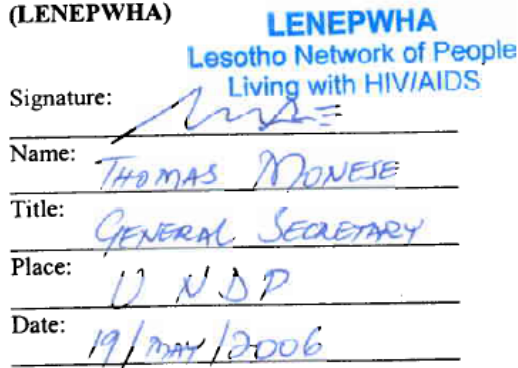 (LENEPWHA)
LENEPWHA
Lesotho Network of People
Living with HIV/AIDS
Signature:
Name: THOMAS MONESE
Title: GENERAL SECRETARY
Place: UNDP
Date: 19/MAY/2006